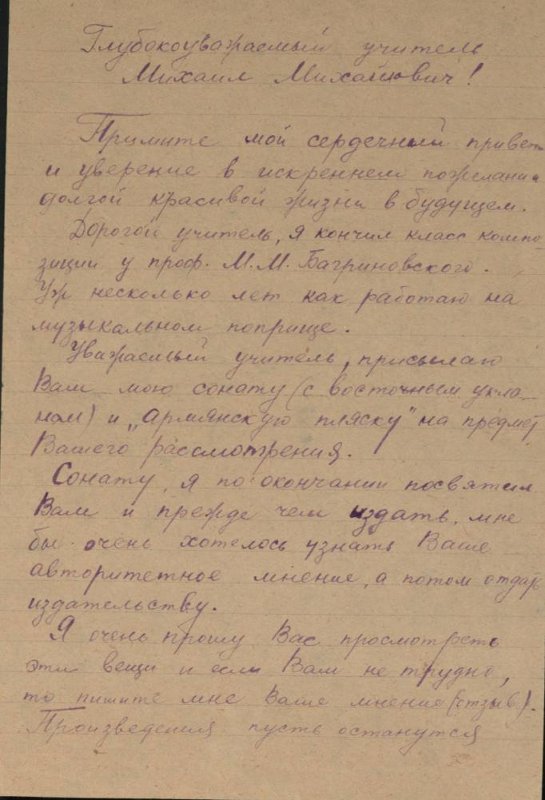 Глубокоуважаемый учитель
Михаил Михайлович!
Примите мой сердечный привет
и уверение в искреннем пожелании
долгой красивой жизни в будущем.
Дорогой учитель, я кончил класс компо-
зиции у проф. М.М. Багриновского.
Уж несколько лет как работаю на
музыкальном поприще.
Уважаемый учитель, присылаю
Вам мою сонату (с восточным укла-
ном) и "Армянскую пляску" на предмет
Вашего рассмотрения.
Сонату, я по окончании посвятил
Вам и прежде чем издать, мне
бы очень хотелось узнать Ваше
авторитетное мнение, а потом отдать
издательству.
Я очень прошу Вас просмотреть
эти вещи и если Вам не трудно,
то пишите мне Ваше мнение (отзыв).
Произведения пусть останутся